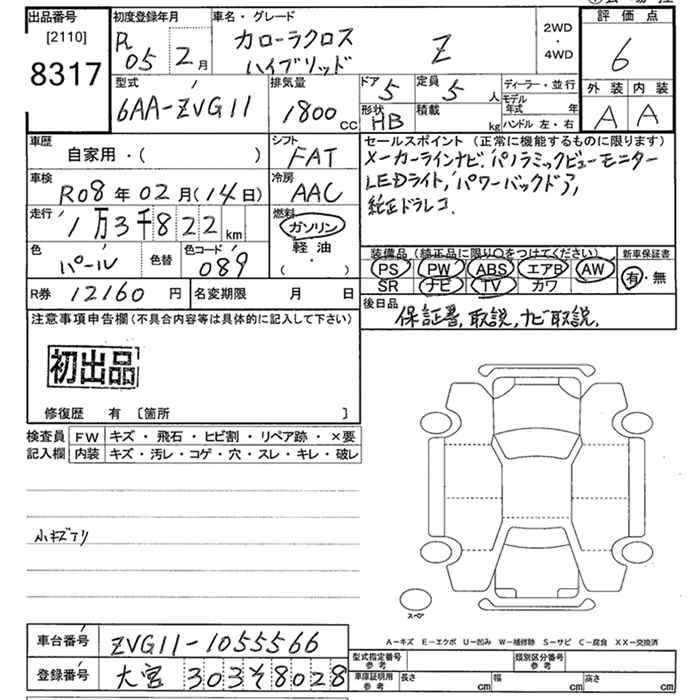 出品番号
[2110]
8317
初度登録年月
R05 2月
車名・グレード
カローラクロス
ハイブリッド
Z
2WD
・
4WD
評価点
6
外装 内装
A A
型式
6AA-ZVG11
排気量
1800cc
ドア 5
定員 5人
形状 HB
積載 kg
ディーラー・並行
モデル年式 年
ハンドル 左・右
車歴
自家用・( )
シフト
FAT
車検
R08年02月(14日)
冷房
AAC
走行
1万3千822km
燃料
ガソリン
軽油
( ・ )
色
パール
色替
色コード
089
R券 12160円
名変期限 月 日
セールスポイント (正常に機能するものに限ります)
メーカーラインナビ.パノラミックビューモニター
LEDライト,パワーバックドア,
純正ドラレコ.
装備品(純正品に限り○をつけてください)
PS PW ABS エアB AW
SR ナビ TV カワ
新車保証書
有・無
後日品
保証書,取説,ナビ取説.
注意事項申告欄(不具合内容等は具体的に記入して下さい)
初出品
修復歴 有 〔箇所 〕
検査員記入欄
FW キズ・飛石・ヒビ割・リペア跡・×要
内装 キズ・汚レ・コゲ・穴・スレ・キレ・破レ
小キズアリ
スペア
A-キズ E-エクボ U-凹み W-補修跡 S-サビ C-腐食 XX-交換済
車台番号 ZVG11-1055566
登録番号 大宮 303そ8028
型式指定番号 参考
類別区分番号 参考
車庫証明用 参考
長さ cm 幅 cm 高さ cm